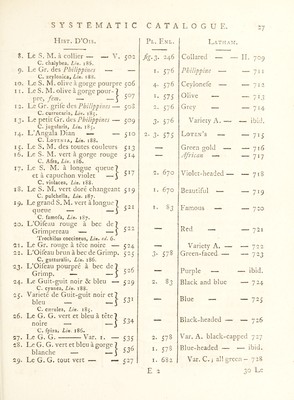 SYSTEMATIC CATALOGUE. 27
HIST. D'OIS. PL. ENL. LATHAM.
8. Le S. M. à collier — — V. 502 fig. 3. 246 Collared — — II. 709
C. chalybea. Lin. 186.
9. Le Gr. des Philippines — — 1. 576 Philippine — — 711
C. zeylonica, Lin. 188.
10. Le S. M. olive à gorge pourpre 506 4. 576 Ceylonese — — 712
11. Le S. M. olive à gorge pourpre, fem. — — 507 4. 575 Olive — — 713
12. Le Gr. grise des Philippines — 508 2. 576 Grey — — 714
C. currucaria, Lin. 185.
13. Le petit Gr. des Philippines — 509 3. 576 Variety A. — — ibid.
C. jugularis, Lin. 185.
14. L'Angala Dian — — 510 2. 3. 575 LOTEN'S — — 715
C. LOTENIA, Lin. 188.
15. Le S. M. des toutes couleurs 513 — Green gold — — 716
16. Le S. M. vert à gorge rouge 514 — African — — 717
C. Afra, Lin. 186.
17. Le S. M. à longue queue et à capuchon violet — 517 2. 670 Violet-headed — — 718
C. violacea, Lin. 188.
18. Le S. M. vert doré changeant 519 1. 670 Beautiful — — 719
C. pulchella. Lin. 187.
19. Le grand S. M. vert à longue queue — — 521 1. 83 Famous — — 720
C. famosa, Lin. 187.
20. L'Oiseau rouge à bec de Grimpereau — — 522 — Red — — 721
Trochilus coccineus, Lin. ed. 6.
21. Le Gr. rouge à tête noire — 524 — Variety A. — — 722
22. L'Oiseau brun à bec de Grimp. 525 3. 578 Green-faced — — 723
C. gutturalis, Lin. 186.
23. L'Oiseau pourpré à bec de Grimp. — — 526 — Purple — — ibid.
24. Le Guit-guit noir & bleu — 529 2. 83 Black and blue — 724
C. cyanea, Lin. 188.
25. Varieté de Guit-guit noir et bleu — — 531 — Blue — — 725
C. cærulea, Lin. 185.
26. Le G. G. vert et bleu à tête noire — — 534 — Black-headed — — 726
C. spiza, Lin. 186.
27. Le G. G. —— Var. 1. — 535 2. 578 Var. A. black-capped 727
28. Le G. G. vert et bleu à gorge blanche — — 536 1. 578 Blue-headed — — ibid.
29. Le G. G. tout vert — — 527 1. 682 Var. C; all green — 728
E 2 30 Le